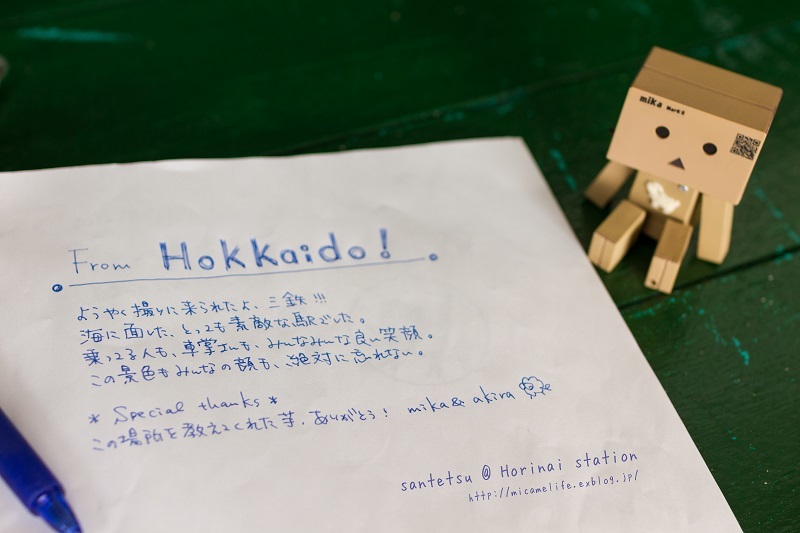 From Hokkaido!
ようやく撮りに来られたよ、三鉄!!!
海に面した、とっても素敵な駅でした。
乗ってる人も、車掌さんも、みんなみんな良い笑顔。
この景色もみんなの顔も、絶対に忘れない。
* Special thanks *
この場所を教えてくれた芋、ありがとう! mika & akira
santetsu @ Horinai station
http://micamelife.exblog.jp/
mika Mark II